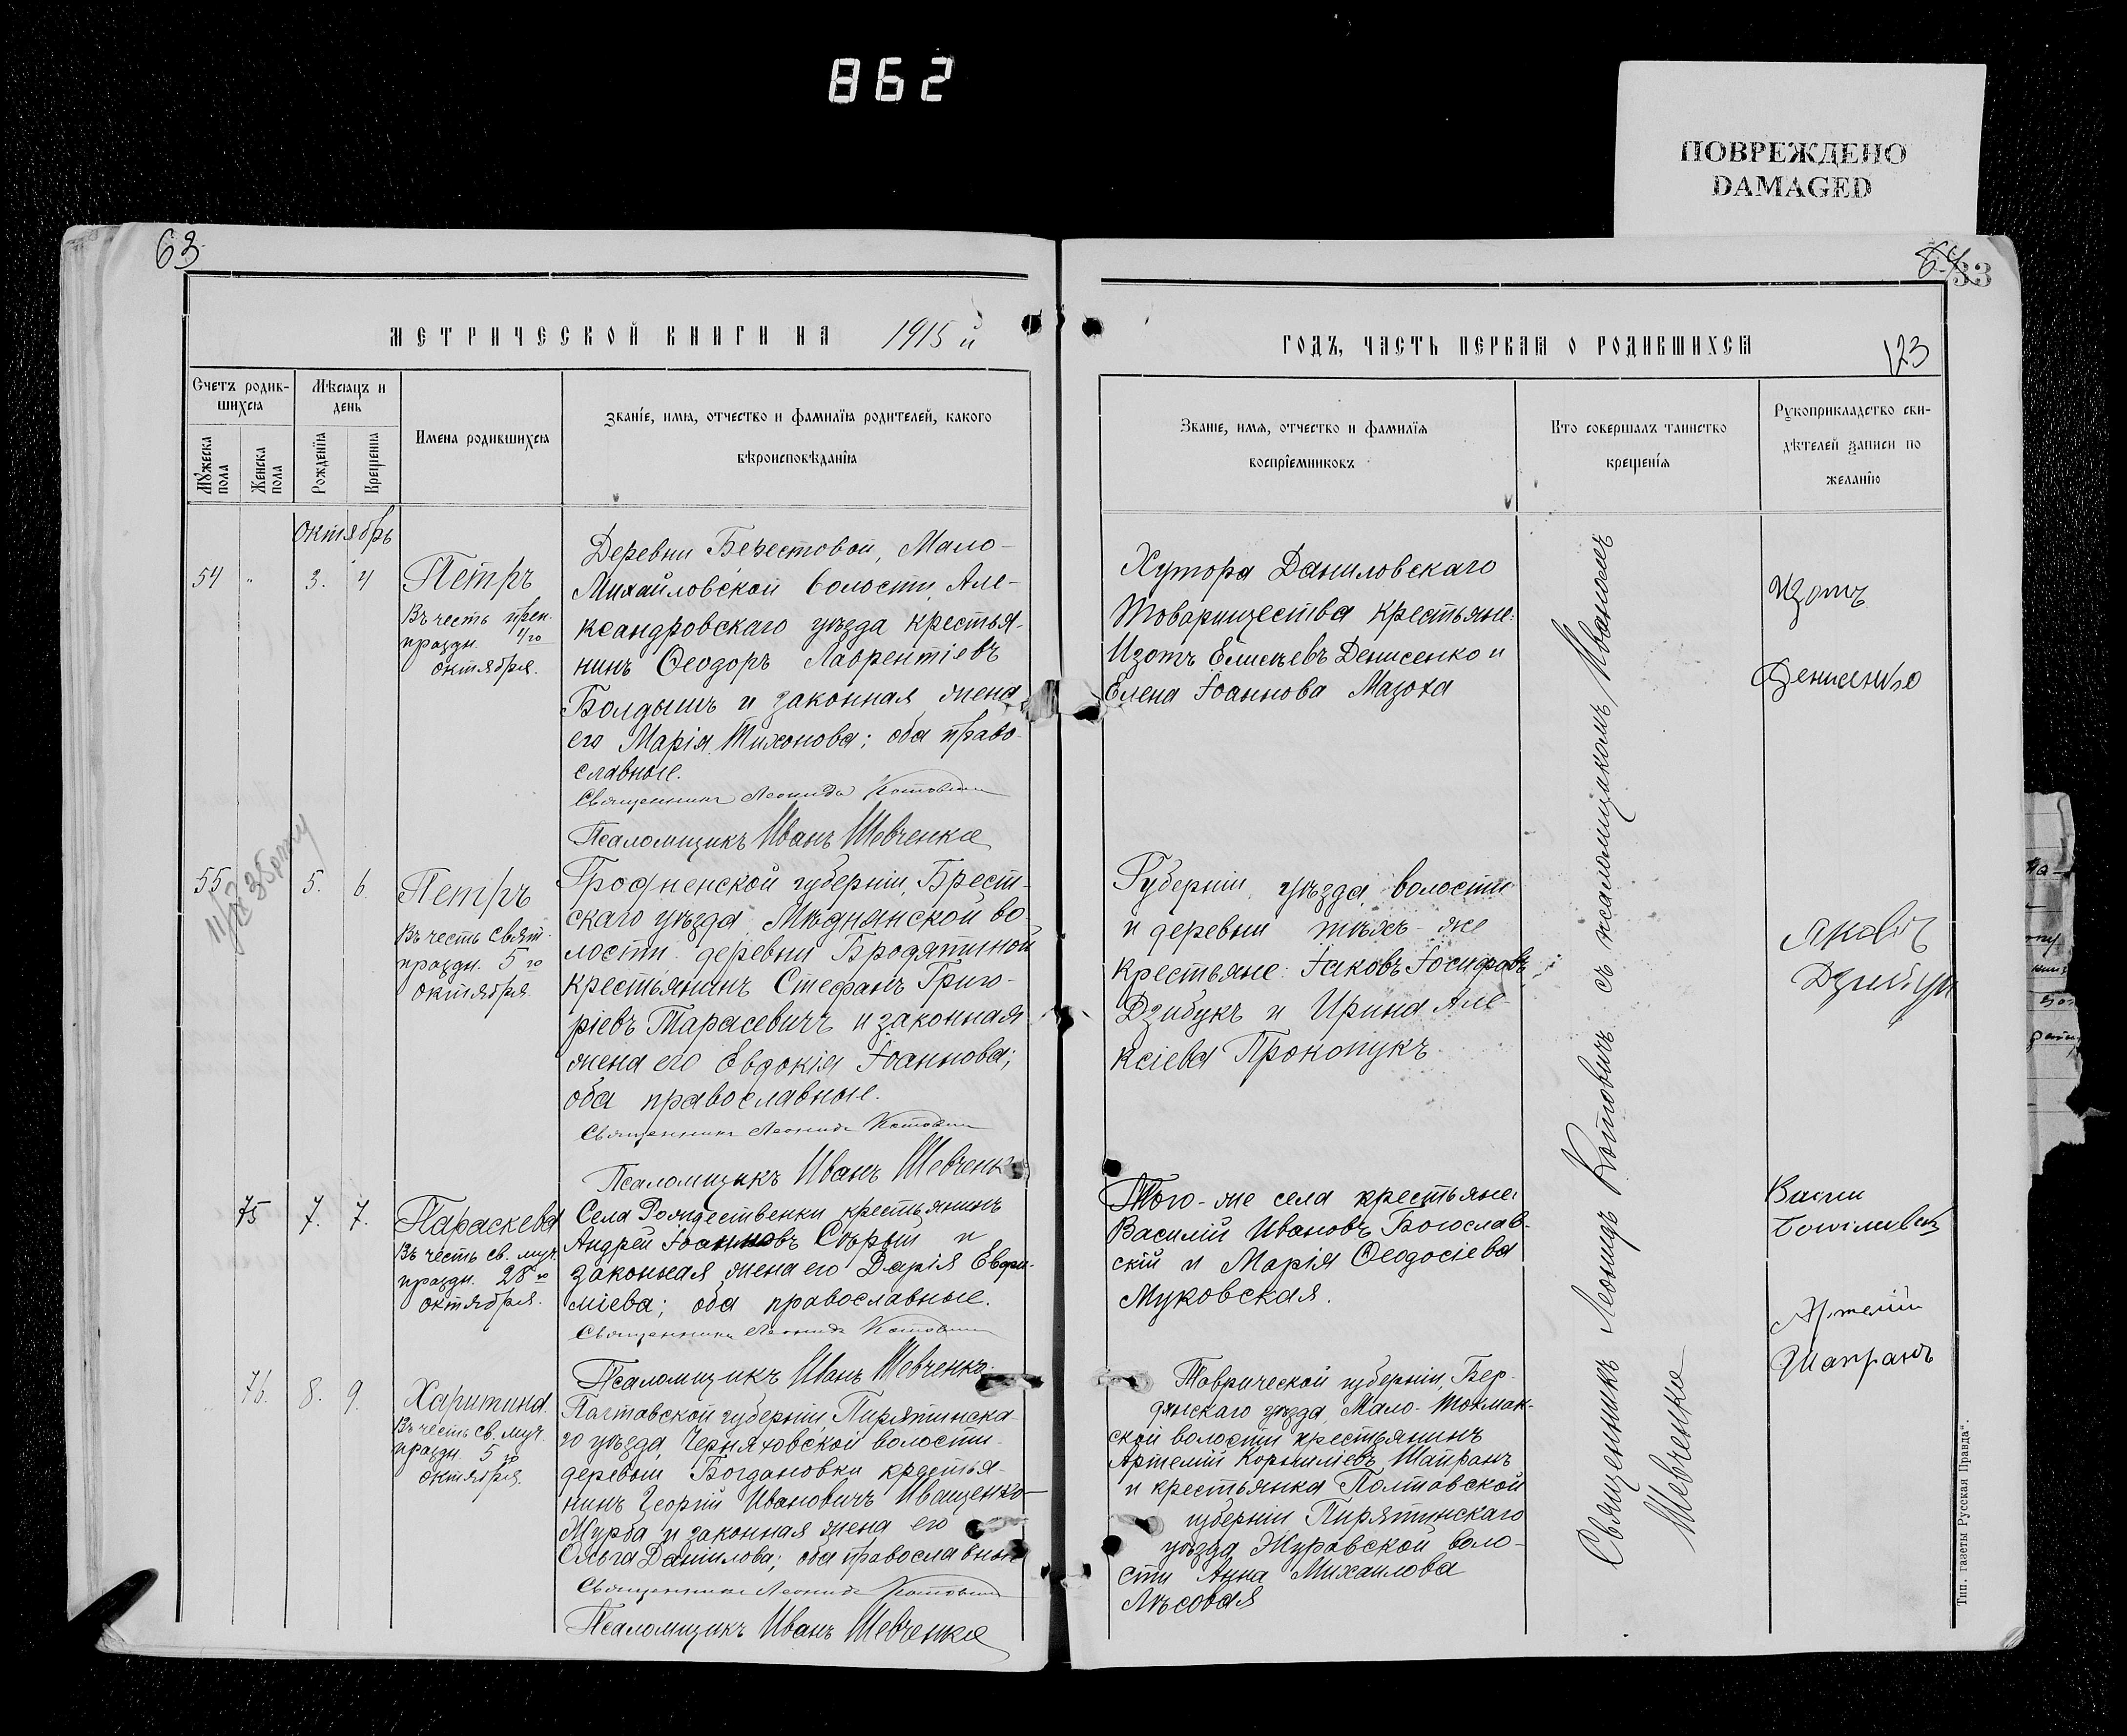 862
ПОВРЕЖДЕНО
DAMAGED
63
64
33
МЕТРИЧЕСКОЙ КНИГИ НА 1915 й
ГОДЪ, ЧАСТЬ ПЕРВАЯ О РОДИВШИХСЯ
123
Счетъ родив-
шихся
Мѣсяцъ и
день
Мꙋжеска
пола
Женска
пола
Рожденїя
Крещенїя
Имена родившихся
Званїе, имя, отчество и фамилїя родителей, какого
вѣроисповѣданїя
Званїе, имя, отчество и фамилїя
воспрїемниковъ
Кто совершалъ таинство
крещенїя
Рꙋкоприкладство сви-
дѣтелей записи по
желанїю
Октябрь
54 " 3. 4
Петръ
Въ честь
праздн. 4/20
октября.
Деревни Берестовой, Мало-
Михайловской волости, Але-
ксандровскаго уѣзда крестья-
нинъ Ѳеодоръ Лаврентіевъ
Болдышъ и законная жена
его Марія Тихонова; оба право-
славные.
Священникъ Леонидъ Котовичъ
Псаломщикъ Иванъ Шевченко
Хутора Даниловскаго
Товарищества крестьяне:
Изотъ Елисѣевъ Денисенко и
Елена Іоаннова Мазоха
Изотъ
Денисенко
55 5. 6.
Петръ
Въ честь Свят.
праздн. 5 го
октября
Гродненской губерніи, Брест-
скаго уѣзда, Мѣднянской во-
лости деревни Бродятиной
крестьянинъ Стефанъ Григо-
ріевъ Тарасевичъ и законная
жена его Евдокія Іоаннова;
оба православные.
Священникъ Леонидъ Котовичъ
Псаломщикъ Иванъ Шевченко
Губерніи, уѣзда, волости
и деревни тѣхъ-же
крестьяне: Іаковъ Іосифовъ
Дзибукъ и Ирина Але-
ксіева Прокопукъ
Яковъ
75 7. 7.
Параскева
Въ честь св. муч.
праздн. 28 го
октября.
Села Рождественки крестьянинъ
Андрей Іоанновъ Сѣрый и
законная жена его Дарія Евфи-
міева; оба православные.
Священникъ Леонидъ Котовичъ
Псаломщикъ Иванъ Шевченко
Того-же села крестьяне:
Василій Ивановъ Богослав-
скій и Марія Ѳеодосіева
Муковская.
76. 8. 9.
Харитина
Въ честь св. муч.
праздн. 5 го
октября.
Полтавской губерніи Пирятинска-
го уѣзда, Черняховской волости
деревни Богдановки крестья-
нинъ Георгій Ивановичъ Иващенко-
Журба и законная жена его
Ольга Даніилова; оба православные
Священникъ Леонидъ Котовичъ
Псаломщикъ Иванъ Шевченко
Таврической губерніи, Бер-
дянскаго уѣзда, Мало-Токмак-
ской волости крестьянинъ
Артемій Корниліевъ Шапранъ
и крестьянка Полтавской
губерніи Пирятинскаго
уѣзда Журавской воло-
сти Анна Михаилова
Лѣсовая
Артемій
Шапранъ
Священникъ Леонидъ Котовичъ съ псаломщикомъ Иваномъ
Шевченко
Тип. газеты „Русская Правда".